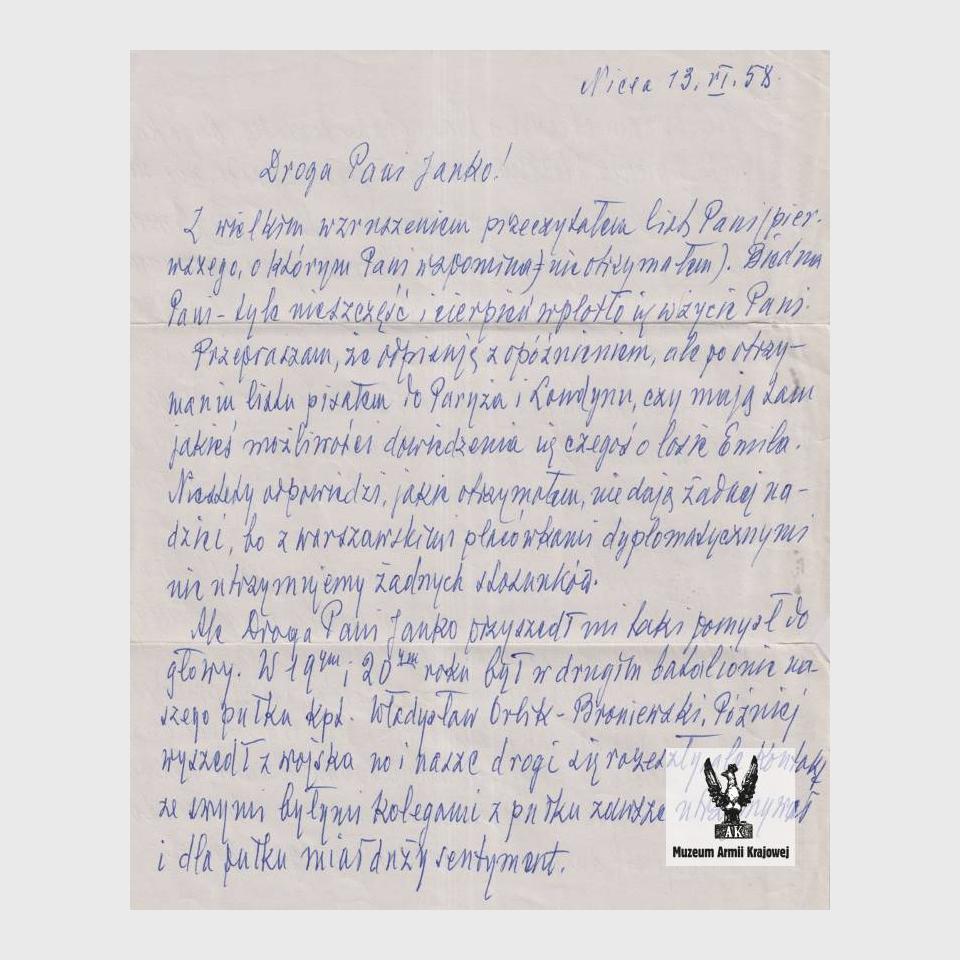 Nicea 13.VI.58.
Droga Pani Janko!
Z wielkim wzruszeniem przeczytałem list Pani (pier-
wszego, o którym Pani wspomina, nie otrzymałem). Biedna
Pani - tyle nieszczęść i cierpień wplotło się w życie Pani.
Przepraszam, że odpisuję z opóźnieniem, ale po otrzy-
maniu listu pisałem do Paryża i Londynu, czy mają tam
jakieś możliwości dowiedzenia się czegoś o losie Emila.
Niestety odpowiedzi, jakie otrzymałem, nie dają żadnej na-
dziei, bo z warszawskimi placówkami dyplomatycznymi
nie utrzymujemy żadnych stosunków.
Ale Droga Pani Janko przyszedł mi taki pomysł do
głowy. W 19ym i 20ym roku był w drugim batalionie na-
szego pułku kpt. Władysław Orlik-Broniewski. Później
wyszedł z wojska no i nasze drogi się rozeszły, ale kontakt
ze swymi byłymi kolegami z pułku zawsze utrzymywał
i dla pułku miał duży sentyment.
AK
Muzeum Armii Krajowej